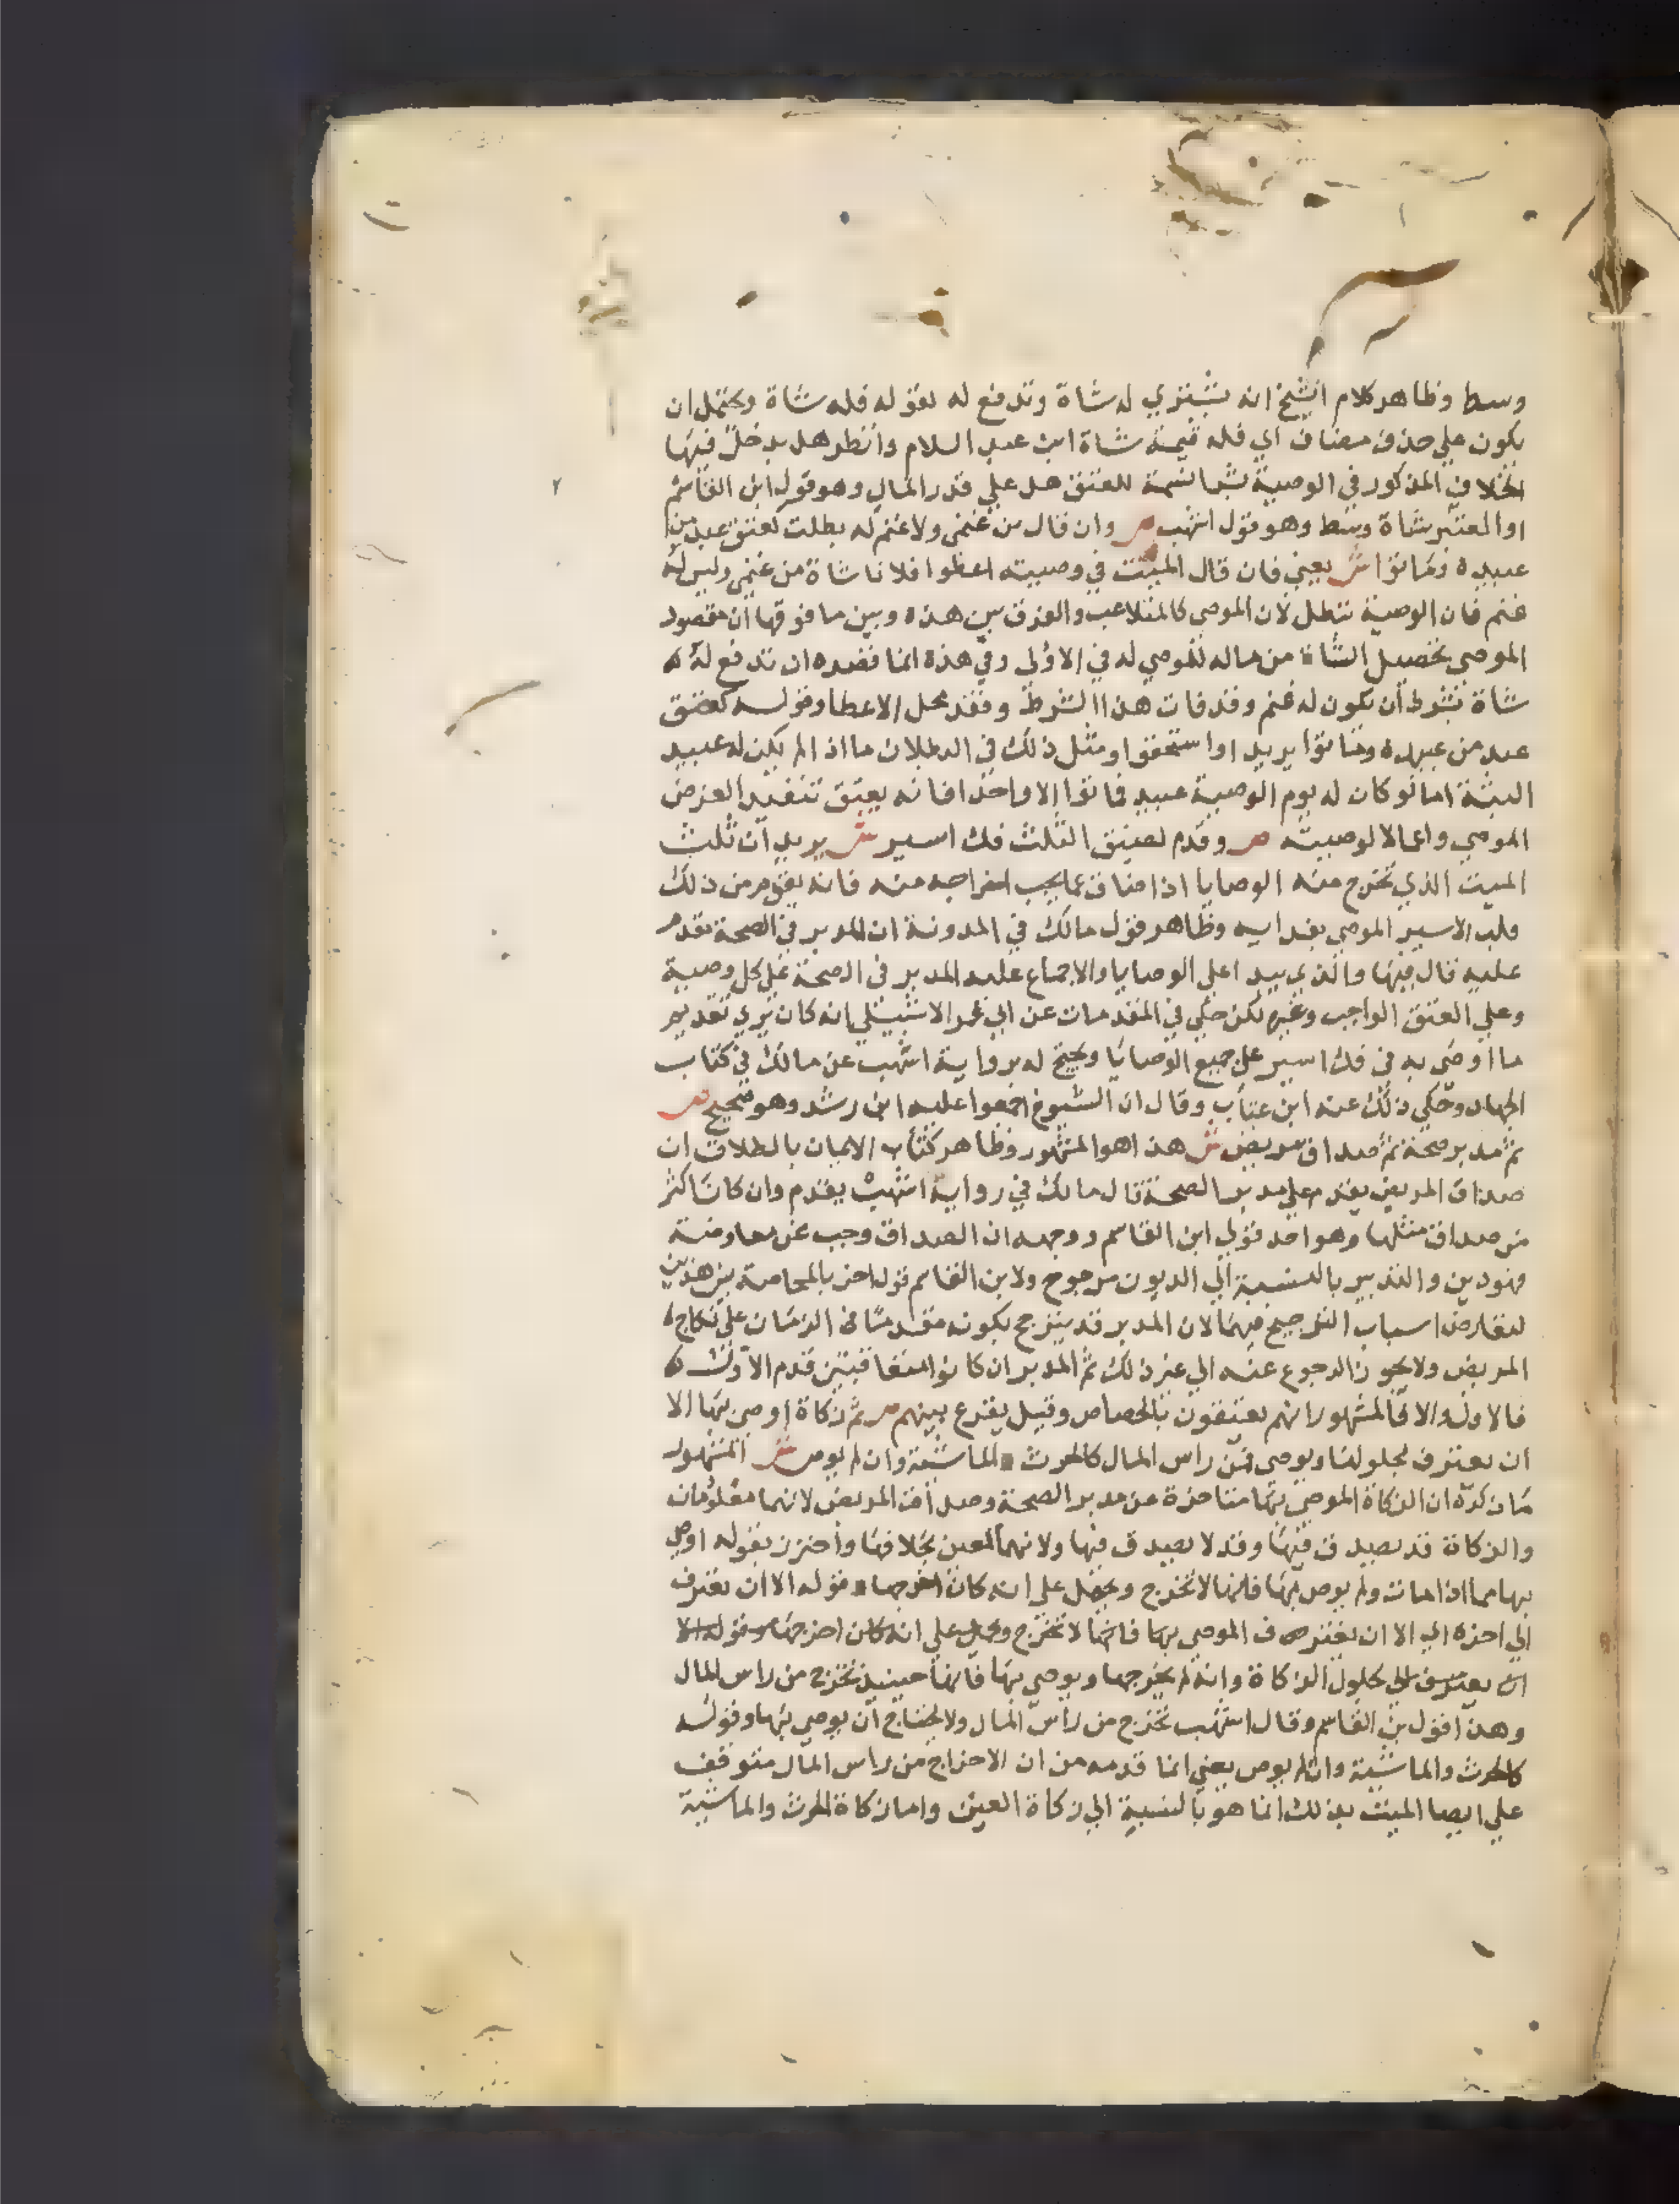 وسط وظاهر كلام الشيخ انه يشتري له شاة وتدفع له لقوله فله شاة ويحتمل ان
يكون علي حذف مضاف اي فله قيمة شاة ابن عبد السلام وانظر هل يدخل فيها
الخلاف المذكور في الوصية بشرا نسمة للعتق هل علي قدر المال وهو قول ابن القاسم
او المعتبر شاة وسط وهو قول اشهب ص وان قال من غنمي ولا غنم له بطلت كعتق عبد من
عبيده فماتوا ش يعني فان قال الميت في وصيته اعطوا فلانا شاة من غنمي وليس له
غنم فان الوصية تبطل لان الموصي كالمتلاعب والفرق بين هذه وبين ما فوقها ان مقصود
الموصي تحصيل الشاة من ماله للموصي له في الاولي وفي هذه انما قصده ان تدفع له
شاة بشرط ان يكون له غنم وقد فات هذا الشرط وفقد محل الاعطا وقوله كعتق
عبد من عبيده وماتوا يريد او استحقوا ومثل ذلك في البطلان ما اذا لم يكن له عبيد
البتة اما لو كان له يوم الوصية عبيد فماتوا الا واحدا فانه يعتق تنفيذ الغرض
الموصي واعمالا لوصيته ص وقدم لضيق الثلث فك اسير ش يريد ان ثلث
الميت الذي تخرج منه الوصايا اذا ضاق عما يجب اخراجه منه فانه يقوم من ذلك
فلب الاسير الموصي بفدايه وظاهر قول مالك في المدونة ان المدبر في الصحة يقدم
عليه قال فيها والذي يبدا علي الوصايا والاجماع عليه المدبر في الصحة علي كل وصية
وعلي العتق الواجب وغيره لكن حكي في المقدمات عن ابي عمر الاشبيلي انه كان يري تقديم
ما اوصي به في فك اسير علي جميع الوصايا ويحتج له برواية اشهب عن مالك في كتاب
الجهاد وحكي ذلك عنه ابن عتاب وقال ان الشيوخ اجمعوا عليه ابن رشد وهو صحيح ص
ثم مدبر صحة ثم صداق مريض ش هذا هو المشهور وظاهر كتاب الايمان بالطلاق ان
صداق المريض يقدم علي مدبر الصحة قال مالك في رواية اشهب يقدم وان كان اكثر
من صداق مثلها وهو احد قولي ابن القاسم ووجهه ان الصداق وجب عن معاوضة
فهو دين والتدبير بالنسبة الي الديون مرجوح ولابن القاسم قول اخر بالمحاصة بين هذين
لتعارض اسباب الترجيح فيهما لان المدبر قد يترجح بكونه متقدما في الزمان علي نكاح
المريض ولا يجوز الرجوع عنه الي غير ذلك ثم المدبر ان كانوا متعاقبين قدم الاول
فالاول والا فالمشهور انهم يعتقون بالحصاص وقيل يقرع بينهم ص ثم زكاة اوصي بها الا
ان يعترف بحلولها ويوصي فمن راس المال كالحرث والماشية وان لم يوص ش المشهور
ما ذكره ان الزكاة الموصي بها متاخرة عن مدبر الصحة وصداق المريض لانهما معلومان
والزكاة قد يصدق فيها وقد لا يصدق فيها ولانهما لمعين بخلافها واحترز بقوله اوصي
بها مما اذا مات ولم يوص بها فانها لا تخرج ويحمل علي انه كان اخرجها قوله الا ان يعترف
الي اخره اي الا ان يعترف الموصي بها فانها لا تخرج ويحمل علي انه كان اخرجها وقوله الا
ان يعترف اي بحلول الزكاة وانه لم يخرجها ويوصي بها فانها حينيذ تخرج من راس المال
وهذا قول بن القاسم وقال اشهب تخرج من راس المال ولا يحتاج ان يوصي بها وقوله
كالحرث والماشية وان لم يوص يعني انما قدمه من ان الاخراج من راس المال متوقف
علي ايصا الميت بذلك انما هو بالنسبة الي زكاة العين واما زكاة الحرث والماشية